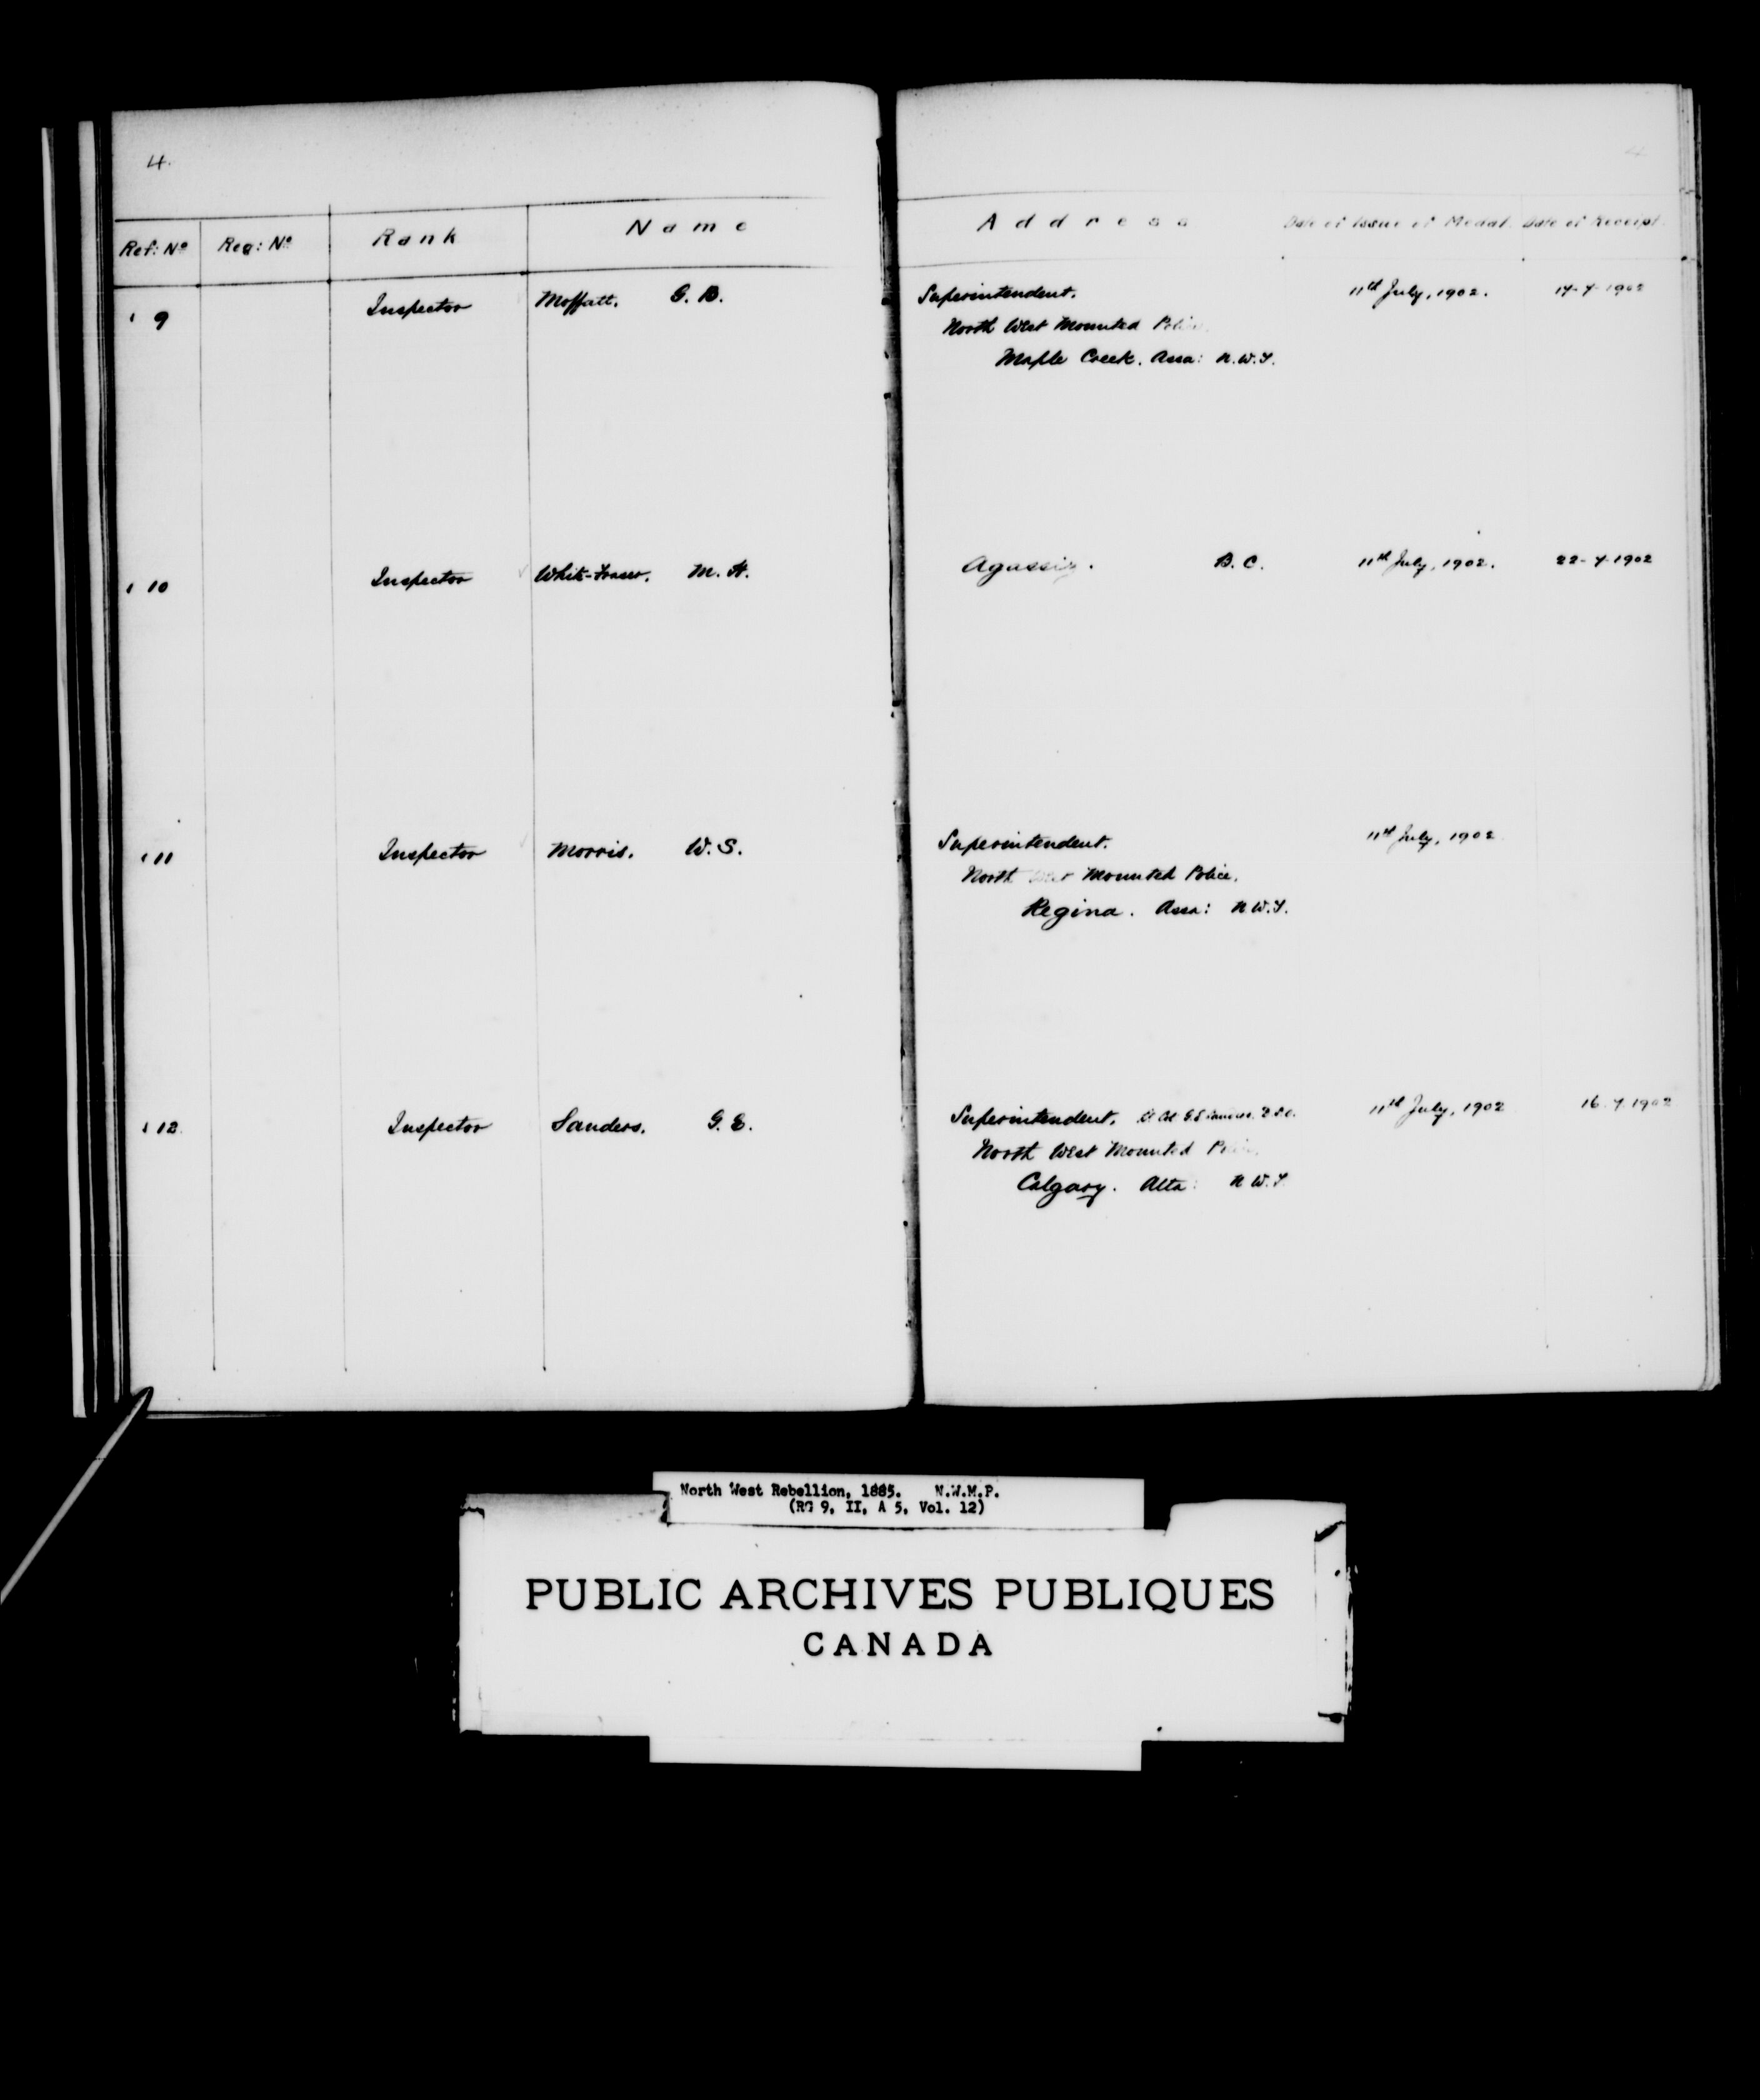 4.
4
Ref: No Reg: No Rank Name Address Date of Issue of Medal. Date of Receipt.
9 Inspector Moffatt. G. B. Superintendent. 11th July, 1902. 17-7-1902
North West Mounted Police.
Maple Creek. Assa: N.W.T.
10 Inspector White-Fraser. M. H. Agassiz. B. C. 11th July, 1902. 22-7-1902
11 Inspector Morris. W. S. Superintendent. 11th July, 1902
North West Mounted Police.
Regina. Assa: N.W.T.
12. Inspector Sanders. G. E. Superintendent. Lt Col G.E. Sanders. D.S.O. 11th July, 1902 16.7.1902
North West Mounted Police.
Calgary. Alta: N.W.T.
North West Rebellion, 1885. N.W.M.P.
(RG 9, II, A 5, Vol. 12)
PUBLIC ARCHIVES PUBLIQUES
CANADA